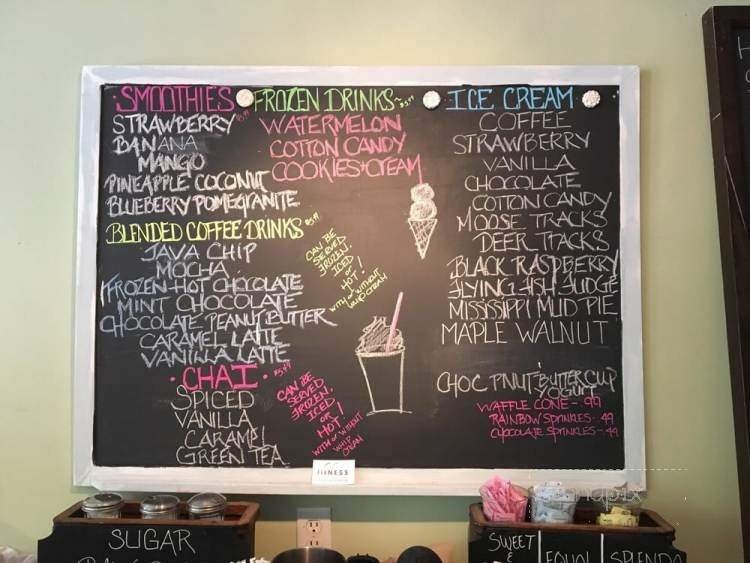 SMOOTHIES
STRAWBERRY
BANANA
MANGO
PINEAPPLE COCONUT
BLUEBERRY POMEGRANITE
BLENDED COFFEE DRINKS
JAVA CHIP
MOCHA
FROZEN HOT CHOCOLATE
MINT CHOCOLATE
CHOCOLATE PEANUT BUTTER
CARAMEL LATTE
VANILLA LATTE
CAN BE
SERVED
FROZEN,
ICED
or
HOT!
WITH or WITHOUT
WHIP CREAM
CHAI
SPICED
VANILLA
CARAMEL
GREEN TEA
CAN BE
SERVED
FROZEN,
ICED
or
HOT!
WITH or WITHOUT
WHIP
CREAM
FROZEN DRINKS
WATERMELON
COTTON CANDY
COOKIES+CREAM
ICE CREAM
COFFEE
STRAWBERRY
VANILLA
CHOCOLATE
COTTON CANDY
MOOSE TRACKS
DEER TRACKS
BLACK RASPBERRY
FLYING FISH FUDGE
MISSISSIPPI MUD PIE
MAPLE WALNUT
CHOC PNUT BUTTER CUP
YOGURT
WAFFLE CONE - .99
RAINBOW SPRINKLES - .49
CHOCOLATE SPRINKLES - .49
SUGAR
SWEET
&
EQUAL
SPLENDA